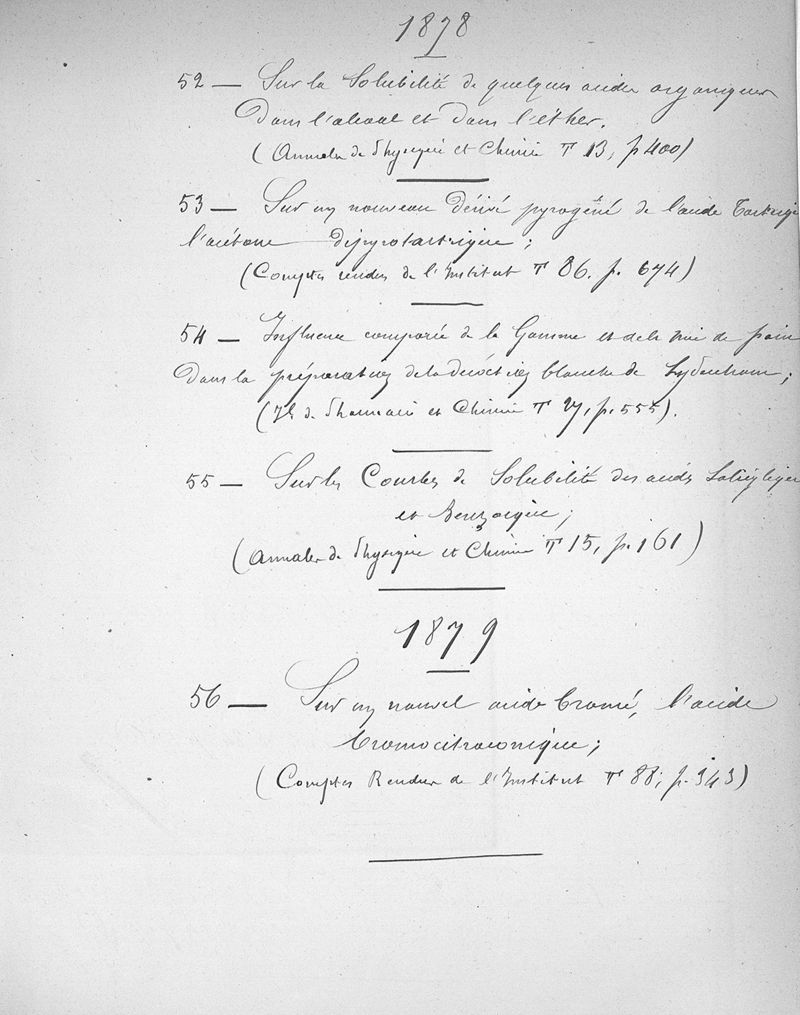 1878
52 — Sur la Solubilité de quelques acides organiques
Dans l'alcool et dans l'éther.
(Annales de Physique et Chimie T 13, p 400)
53 — Sur un nouveau Dérivé pyrogéné de l'acide Tartrique
l'acétone dipyrotartrique;
(Comptes rendus de l'Institut T 86. p. 674)
54 — Influence comparée de la Gomme et de la mie de pain
Dans la préparation de la décoction blanche de Sydenham;
(Jl de Pharmacie et Chimie T 27, p. 555).
55 — Sur les Courbes de Solubilité des acides Salicylique
et Benzoïque;
(Annales de Physique et Chimie T 15, p. 161)
1879
56 — Sur un nouvel acide bromé, l'acide
bromocitraconique;
(Comptes Rendus de l'Institut T 88; p. 343)